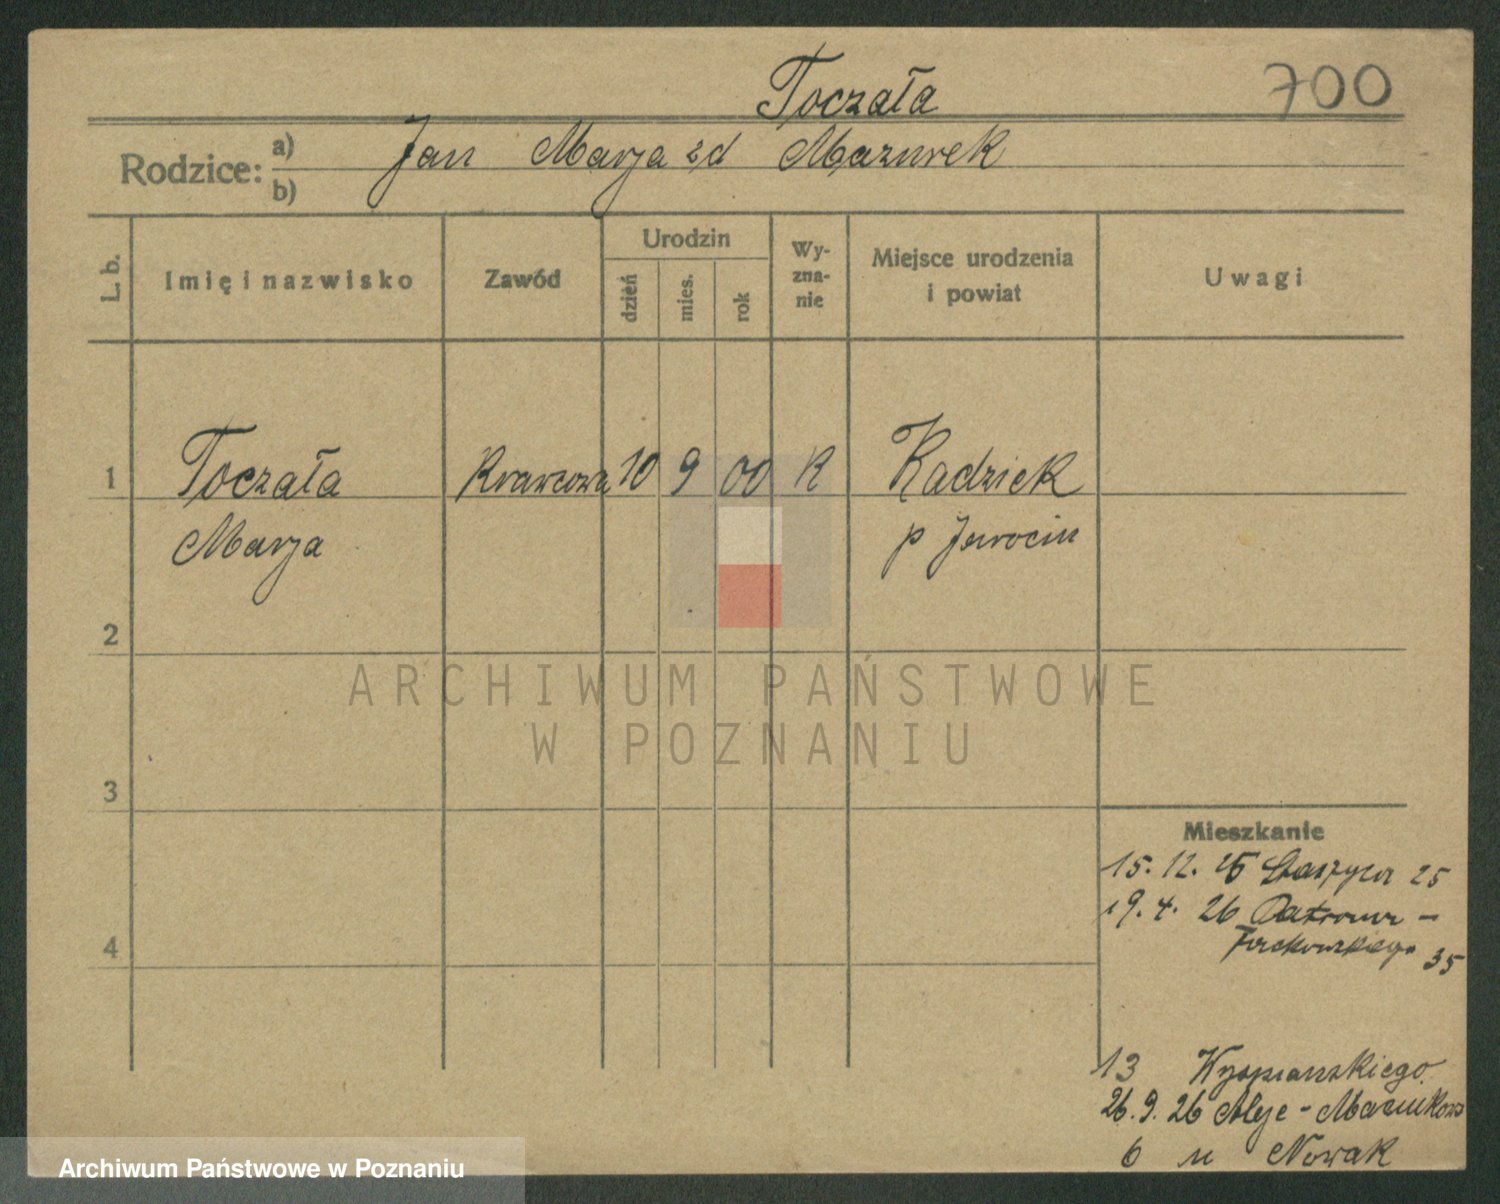 Toczała
700
Rodzice: a) Jan Marja zd Mazurek
b)
L. b.
Imię i nazwisko
Zawód
Urodzin
dzień
mies.
rok
Wy-
zna-
nie
Miejsce urodzenia
i powiat
Uwagi
1 Toczała Krawcowa 10 9 00 R Radziek
Marja p Jarocin
2
ARCHIWUM PAŃSTWOWE
W POZNANIU
3
Mieszkanie
15. 12. 25 Staszyca 25
19. 4. 26
35
4
13 Wyspianskiego
26. 9. 26 Aleje - Marcinkows
6 u Nowak
Archiwum Państwowe w Poznaniu